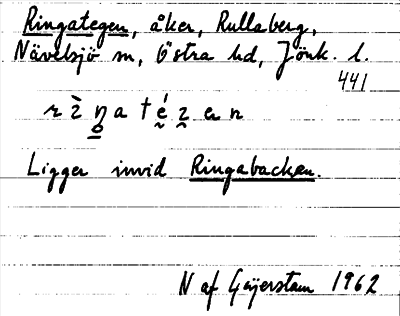 Ringategen, åker, Rullaberg,
Nävelsjö sn, Östra hd, Jönk. l.
441
Ligger invid Ringabacken.
N af Geijerstam 1962